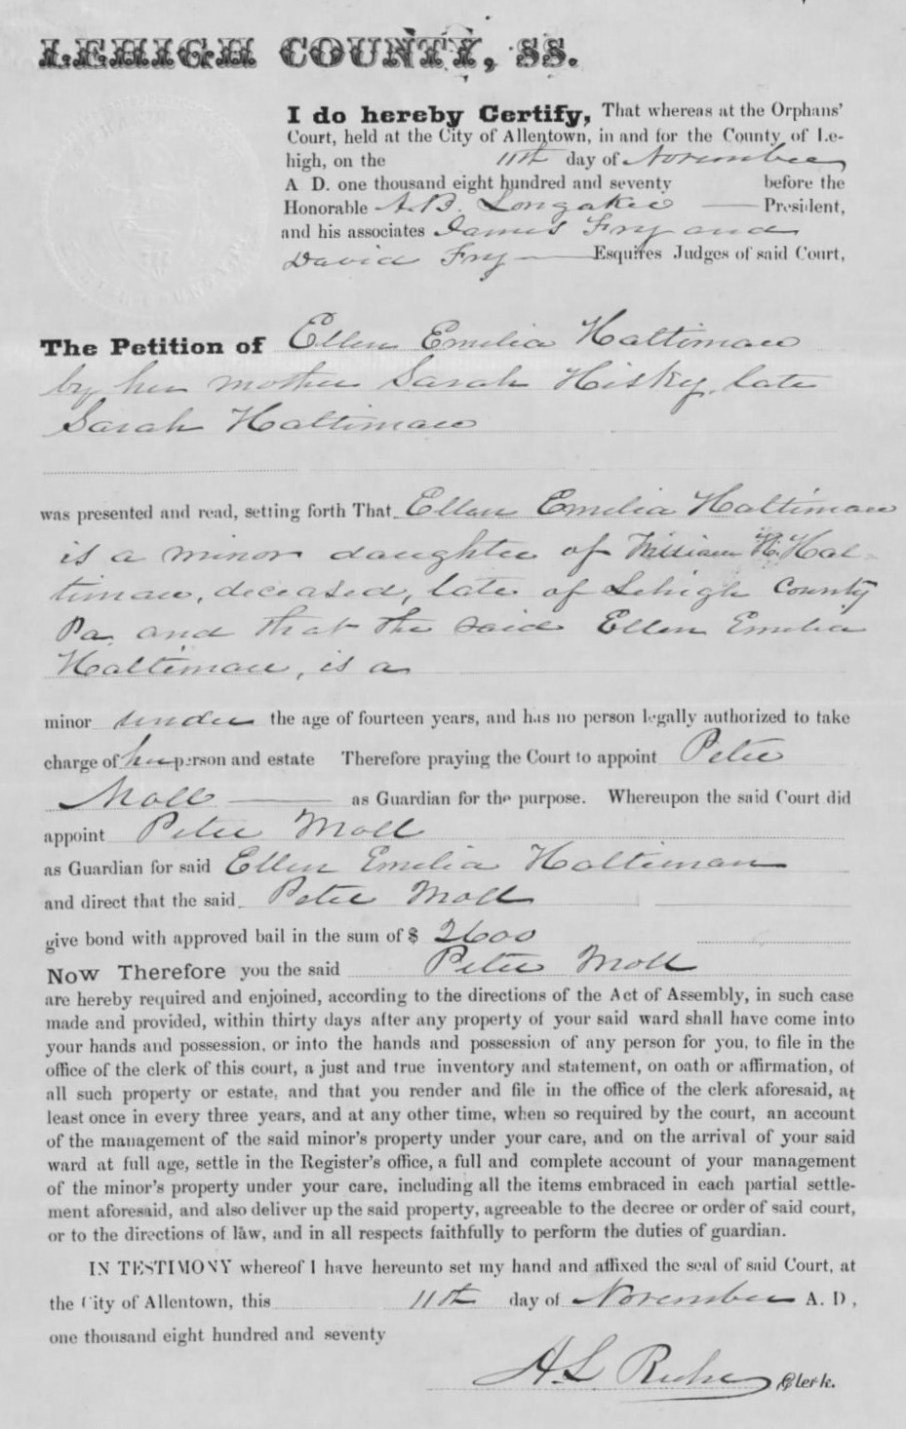 LEHIGH COUNTY, SS.
I do hereby Certify, That whereas at the Orphans'
Court, held at the City of Allentown, in and for the County of Le-
high, on the 11th day of November
A D. one thousand eight hundred and seventy before the
Honorable A.B. Longaker President,
and his associates James Fry and
David Fry Esquires Judges of said Court,
The Petition of Ellen Emelia Haltiman
by her mother Sarah Hisky, late
Sarah Haltiman
was presented and read, setting forth That Ellen Emelia Haltiman
is a minor daughter of William H. Hal-
timan, deceased, late of Lehigh County
Pa, and that the said Ellen Emelia
Haltiman, is a
minor under the age of fourteen years, and has no person legally authorized to take
charge of her person and estate Therefore praying the Court to appoint Peter
Moll as Guardian for the purpose. Whereupon the said Court did
appoint Peter Moll
as Guardian for said Ellen Emelia Haltiman
and direct that the said Peter Moll
give bond with approved bail in the sum of $ 2600
Now Therefore you the said Peter Moll
are hereby required and enjoined, according to the directions of the Act of Assembly, in such case
made and provided, within thirty days after any property of your said ward shall have come into
your hands and possession, or into the hands and possession of any person for you, to file in the
office of the clerk of this court, a just and true inventory and statement, on oath or affirmation, of
all such property or estate, and that you render and file in the office of the clerk aforesaid, at
least once in every three years, and at any other time, when so required by the court, an account
of the management of the said minor's property under your care, and on the arrival of your said
ward at full age, settle in the Register's office, a full and complete account of your management
of the minor's property under your care, including all the items embraced in each partial settle-
ment aforesaid, and also deliver up the said property, agreeable to the decree or order of said court,
or to the directions of law, and in all respects faithfully to perform the duties of guardian.
IN TESTIMONY whereof I have hereunto set my hand and affixed the seal of said Court, at
the City of Allentown, this 11th day of November A. D,
one thousand eight hundred and seventy
A. L. Ruhe Clerk.